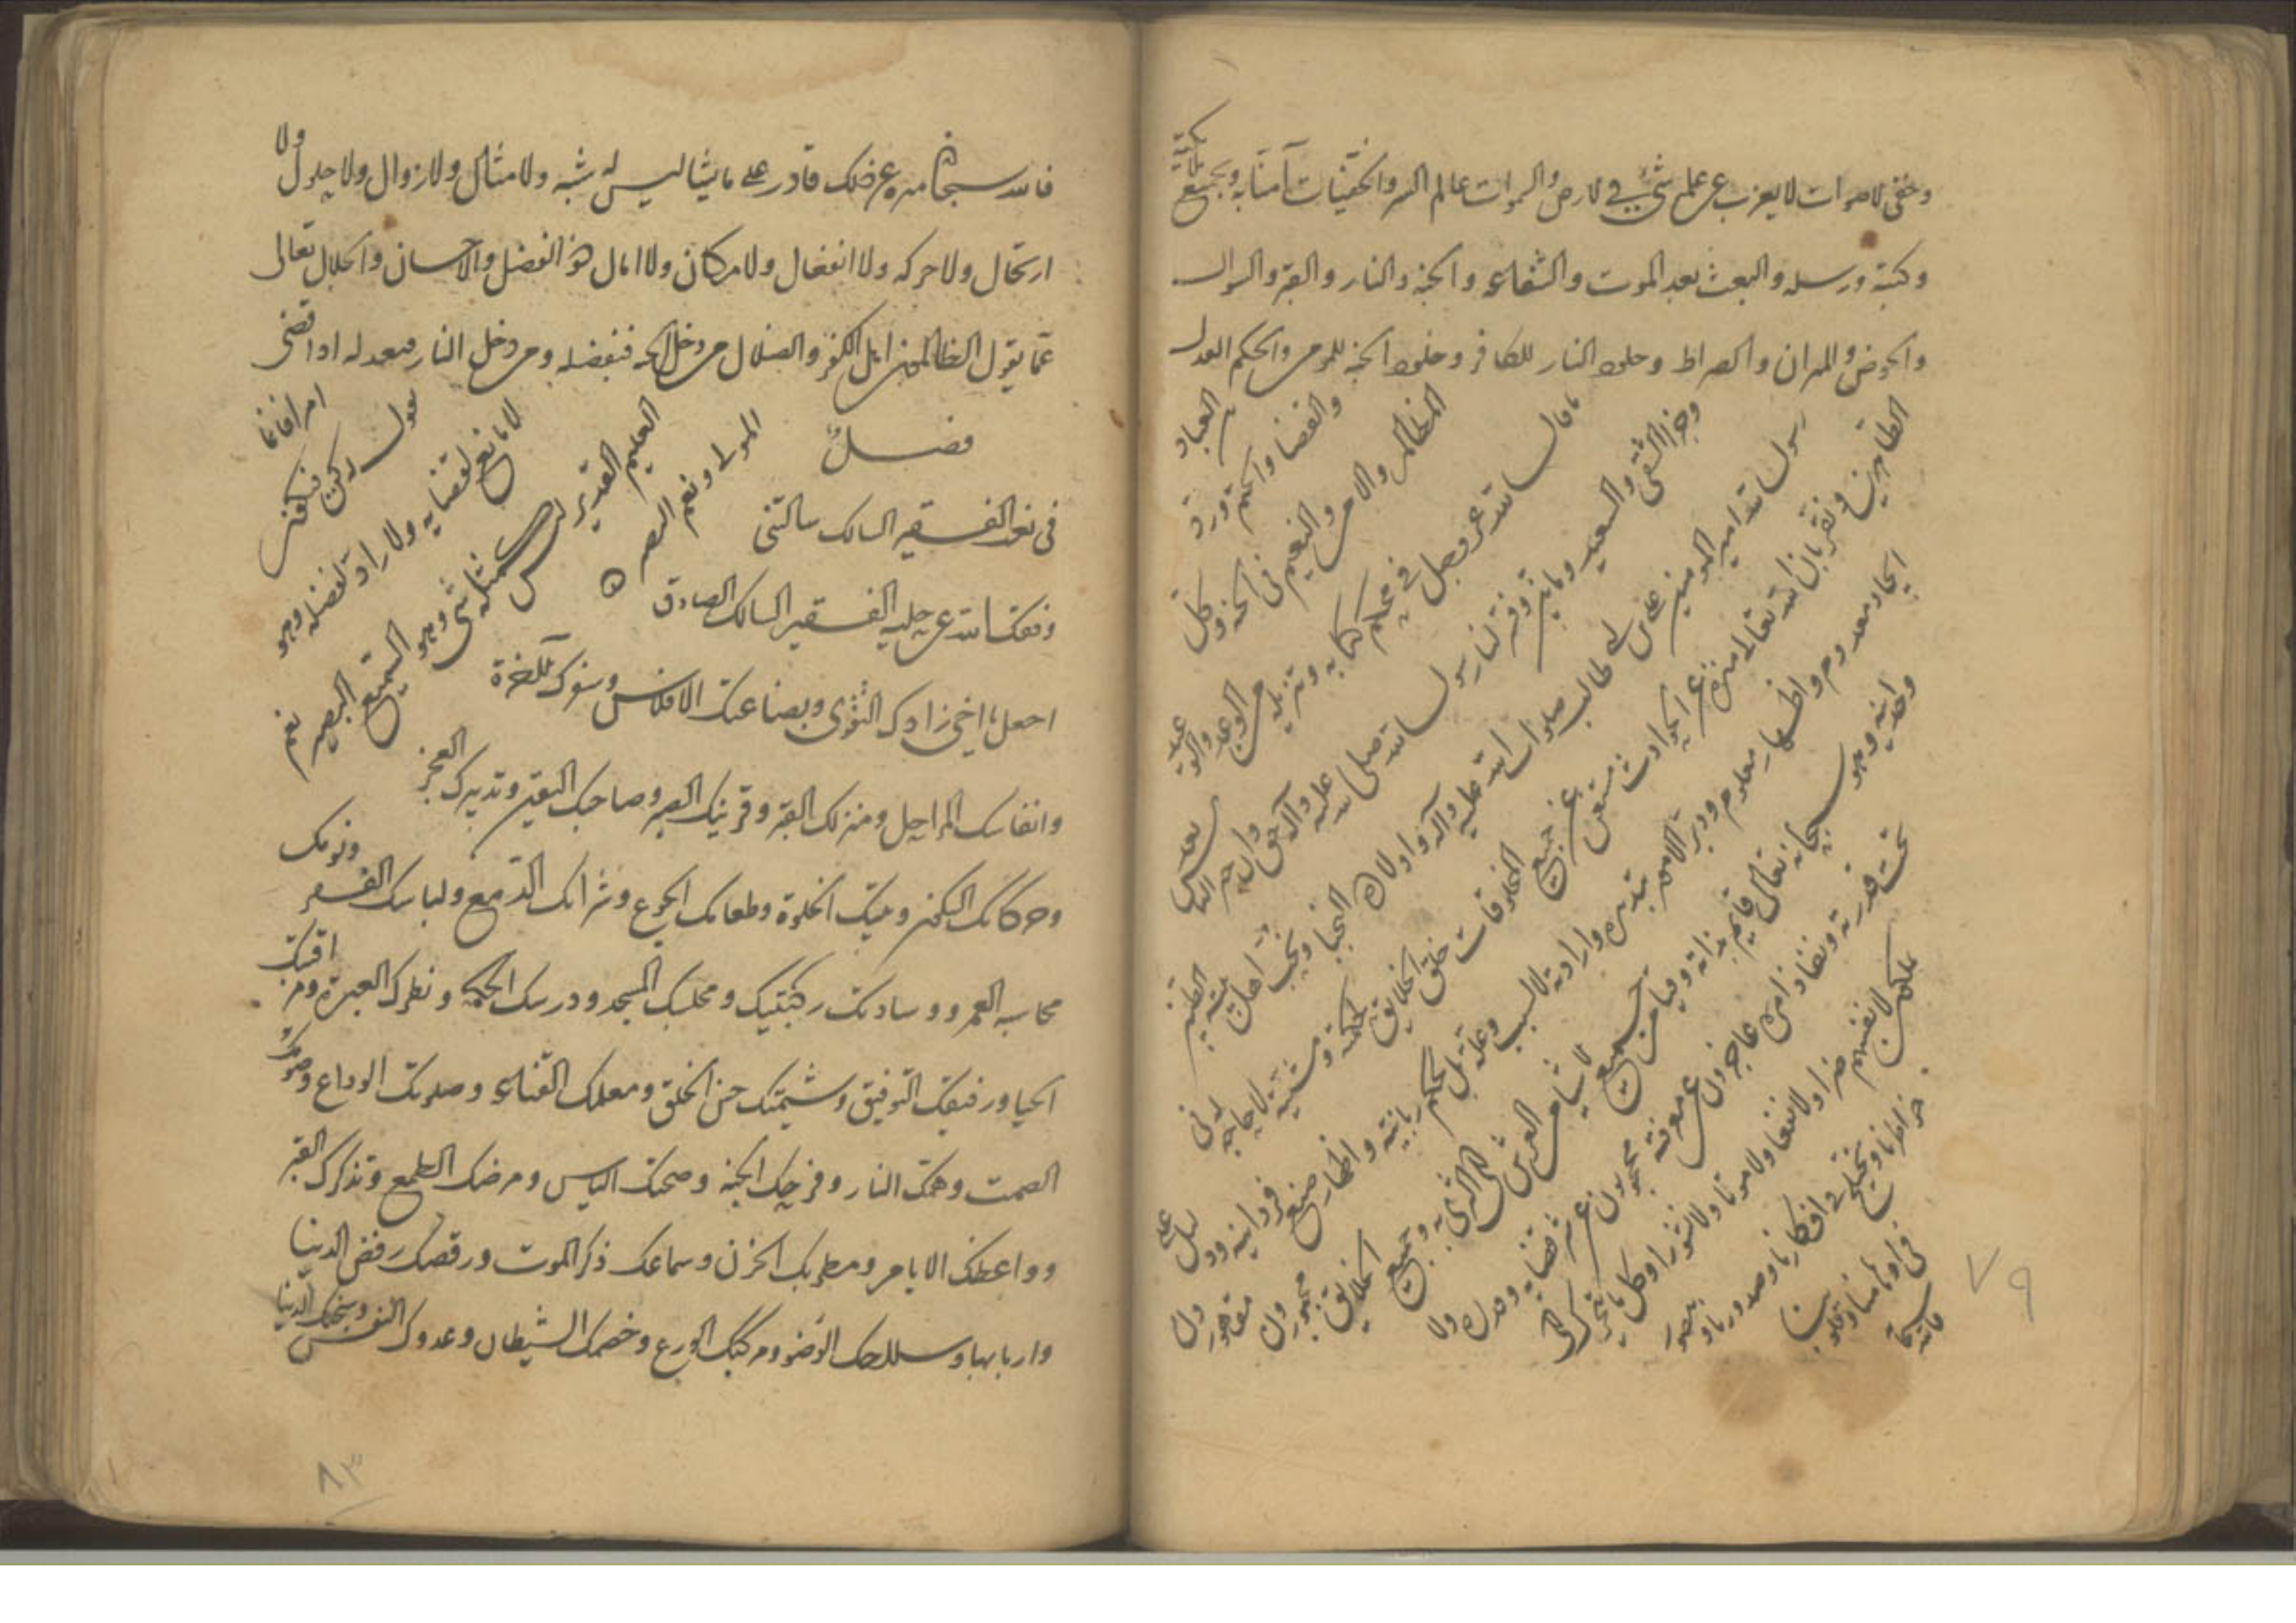 وخفى الاصوات لا يعزب عن علمه شئ فى الارض والسموات عالم السر والخفيات آمنا به وبجميع ملائكته
وكتبه ورسله والبعث بعد الموت والشفاعة والجنة والنار والقبر والسوال
والحوض والميزان والصراط وخلود النار للكافر وخلود الجنة للمومن والحكم العدل
بين العباد
والقضا والحكم ورد
المظالم والامن والنعيم فى الجنة وكل
ما قال الله عز وجل في محكم كتابه وتنزيله من الوعد والوعيد
وجزا الشقى والسعيد وما
رسول الله صلى الله عليه وآله حق
رسول الله امير المومنين على بن ابى طالب صلوات الله عليه وآله واولاده النجبا
الطاهرين ونقر بان الله تعالى منزه عن الحوادث مستغن عن جميع المخلوقات خلق الخلايق بحكمته ومشيته لا لحاجة
ايجاد معدوم واظهار معلوم ودبر الامور بتدبيره وارادته لا لسبب وعلة بل بحكم ربانيته واظهار صنع فردانيته
وحدانيه وهو سبحانه تعالى قايم بذاته وقيام جميع الاشيا من العرش الى الثرى به وجميع الخلايق مجبورون
تحت قدرته ونفاذ امره عاجزون عن معرفته محجوبون عن قضايه وقدره ولا
يملكون لانفسهم ضرا ولا نفعا ولا موتا ولا نشورا وكل ما
خواطرنا ويختلج فى افكارنا وصدورنا
فى اوهامنا وقلوبنا
٧٩
فالله سبحانه منزه عن ذلك قادر على ما يشا ليس له شبه ولا مثال ولا زوال ولا حلول ولا
ارتحال ولا حركه ولا انفعال ولا مكان ولا امال هو الفضل والاحسان والجلال تعالى
عما يقول الظالمين اهل الكفر والضلال من دخل الجنه فبفضله ومن دخل النار فبعدله اذا قضى
امرا فانما
يقول له كن فيكون
لا مانع لقضايه ولا راد لفضله وهو
العليم القدير ليس كمثله شى وهو السميع البصير نعم
المولى ونعم النصير
فصل
فى نعت الفقير السالك سالتنى
وفقك الله عن حلية الفقير السالك الصادق
اجعل يا اخى زادك التقوى وبضاعتك الافلاس وسوقك الآخرة
وانفاسك المراحل ومنزلك القبر وقرينك الصبر وصاحبك اليقين وتدبيرك العجز
وحركاتك السكون وبيتك الخلوة وطعامك الجوع وشرابك الدمع ولباسك الفقر ونومك
محاسبه العمر ووسادتك ركبتيك ومجلسك المسجد ودرسك الحكمة ونظرك العبرة ومراقبتك
الحيا ورفيقك التوفيق وشيمتك حسن الخلق ومعلمك القناعة وصلوتك الوداع وصومك
الصمت وهمك النار وفرحك الجنة وصحتك الياس ومرضك الطمع وتذكرك القبر
وواعظك الايام ومطربك الحزن وسماعك ذكر الموت ورقصك رفض الدنيا
واربابها وسلاحك الوضو ومركبك الورع وخصمك الشيطان وعدوك النفس وسجنك الدنيا
٨٣